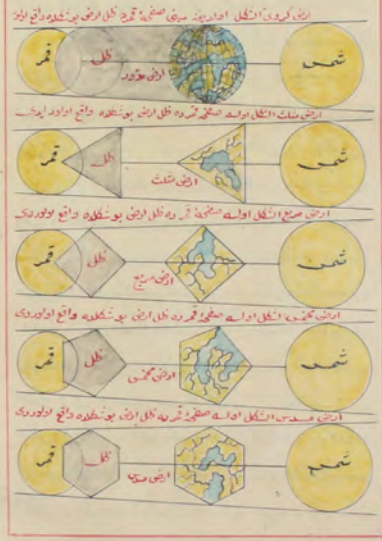 ارض كروى الشكل اولديغنه مبنى صفحهٔ قمرده ظل ارض بوشكلده واقع اولور
شمس
ارض مدور
ظل
قمر
ارض مثلث الشكل اولسه صفحهٔ قمرده ظل ارض بوشكلده واقع اولور ايدى
شمس
ارض مثلث
ظل
قمر
ارض مربع الشكل اولسه صفحهٔ قمرده ظل ارض بوشكلده واقع اولوردى
شمس
ارض مربع
ظل
قمر
ارض مخمس الشكل اولسه صفحهٔ قمرده ظل ارض بوشكلده واقع اولوردى
شمس
ارض مخمس
ظل
قمر
ارض مسدس الشكل اولسه صفحهٔ قمرده ظل ارض بوشكلده واقع اولوردى
شمس
ارض مسدس
ظل
قمر